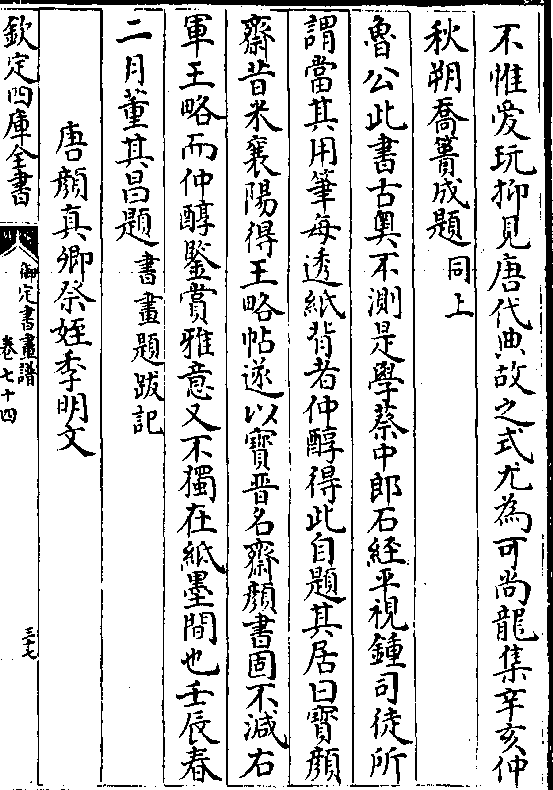 不惟愛玩抑見唐代典故之式尤為可尚龍集辛亥仲
秋朔喬簣成題同上
魯公此書古奥不測是學蔡中郎石經平視鍾司徒所
謂當其用筆每透紙背者仲醇得此自題其居曰寳顔
齋昔米襄陽得王略帖遂以寳晉名齋顔書固不減右
軍王略而仲醇鑒賞雅意又不獨在紙墨間也壬辰春
二月董其昌題書畫題跋記
唐顔真卿祭姪季明文
欽定四庫全書
御定書畫譜
卷七十四
三七